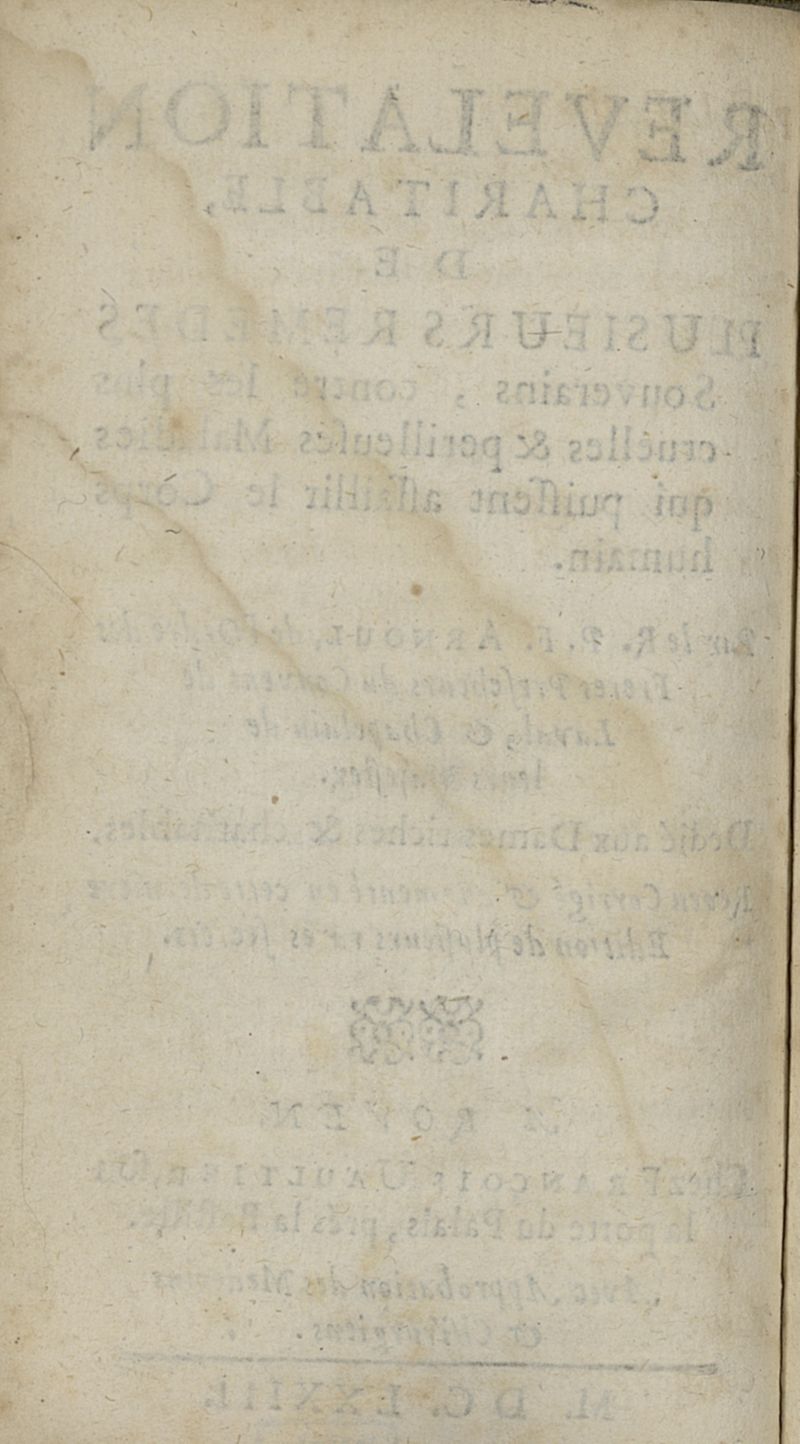 REVELATION
CHARITABLE,
DE
PLUSIEURS REMEDES
Souverains, contre les plus
cruëlles & perilleuſes Maladies
qui puiſſent aſſaillir le Corps
humain.
Par le R. P. F. ARNOUL, de l'Ordre des
Freres Preſcheurs du Convent de
Laval, & Chapelain de
leurs Majeſtez.
Dedié aux Dames riches & charitables,
Reveu Corrigé & Augmenté en cette derniere
Edition de pluſieurs rares ſecrets.
A ROVEN,
Chez FRANÇOIS VAULTIER, ſur
la porte du Palais, prés la
Avec Approbation des Medecins
& Chirurgiens.
M. DC. LXXIII.